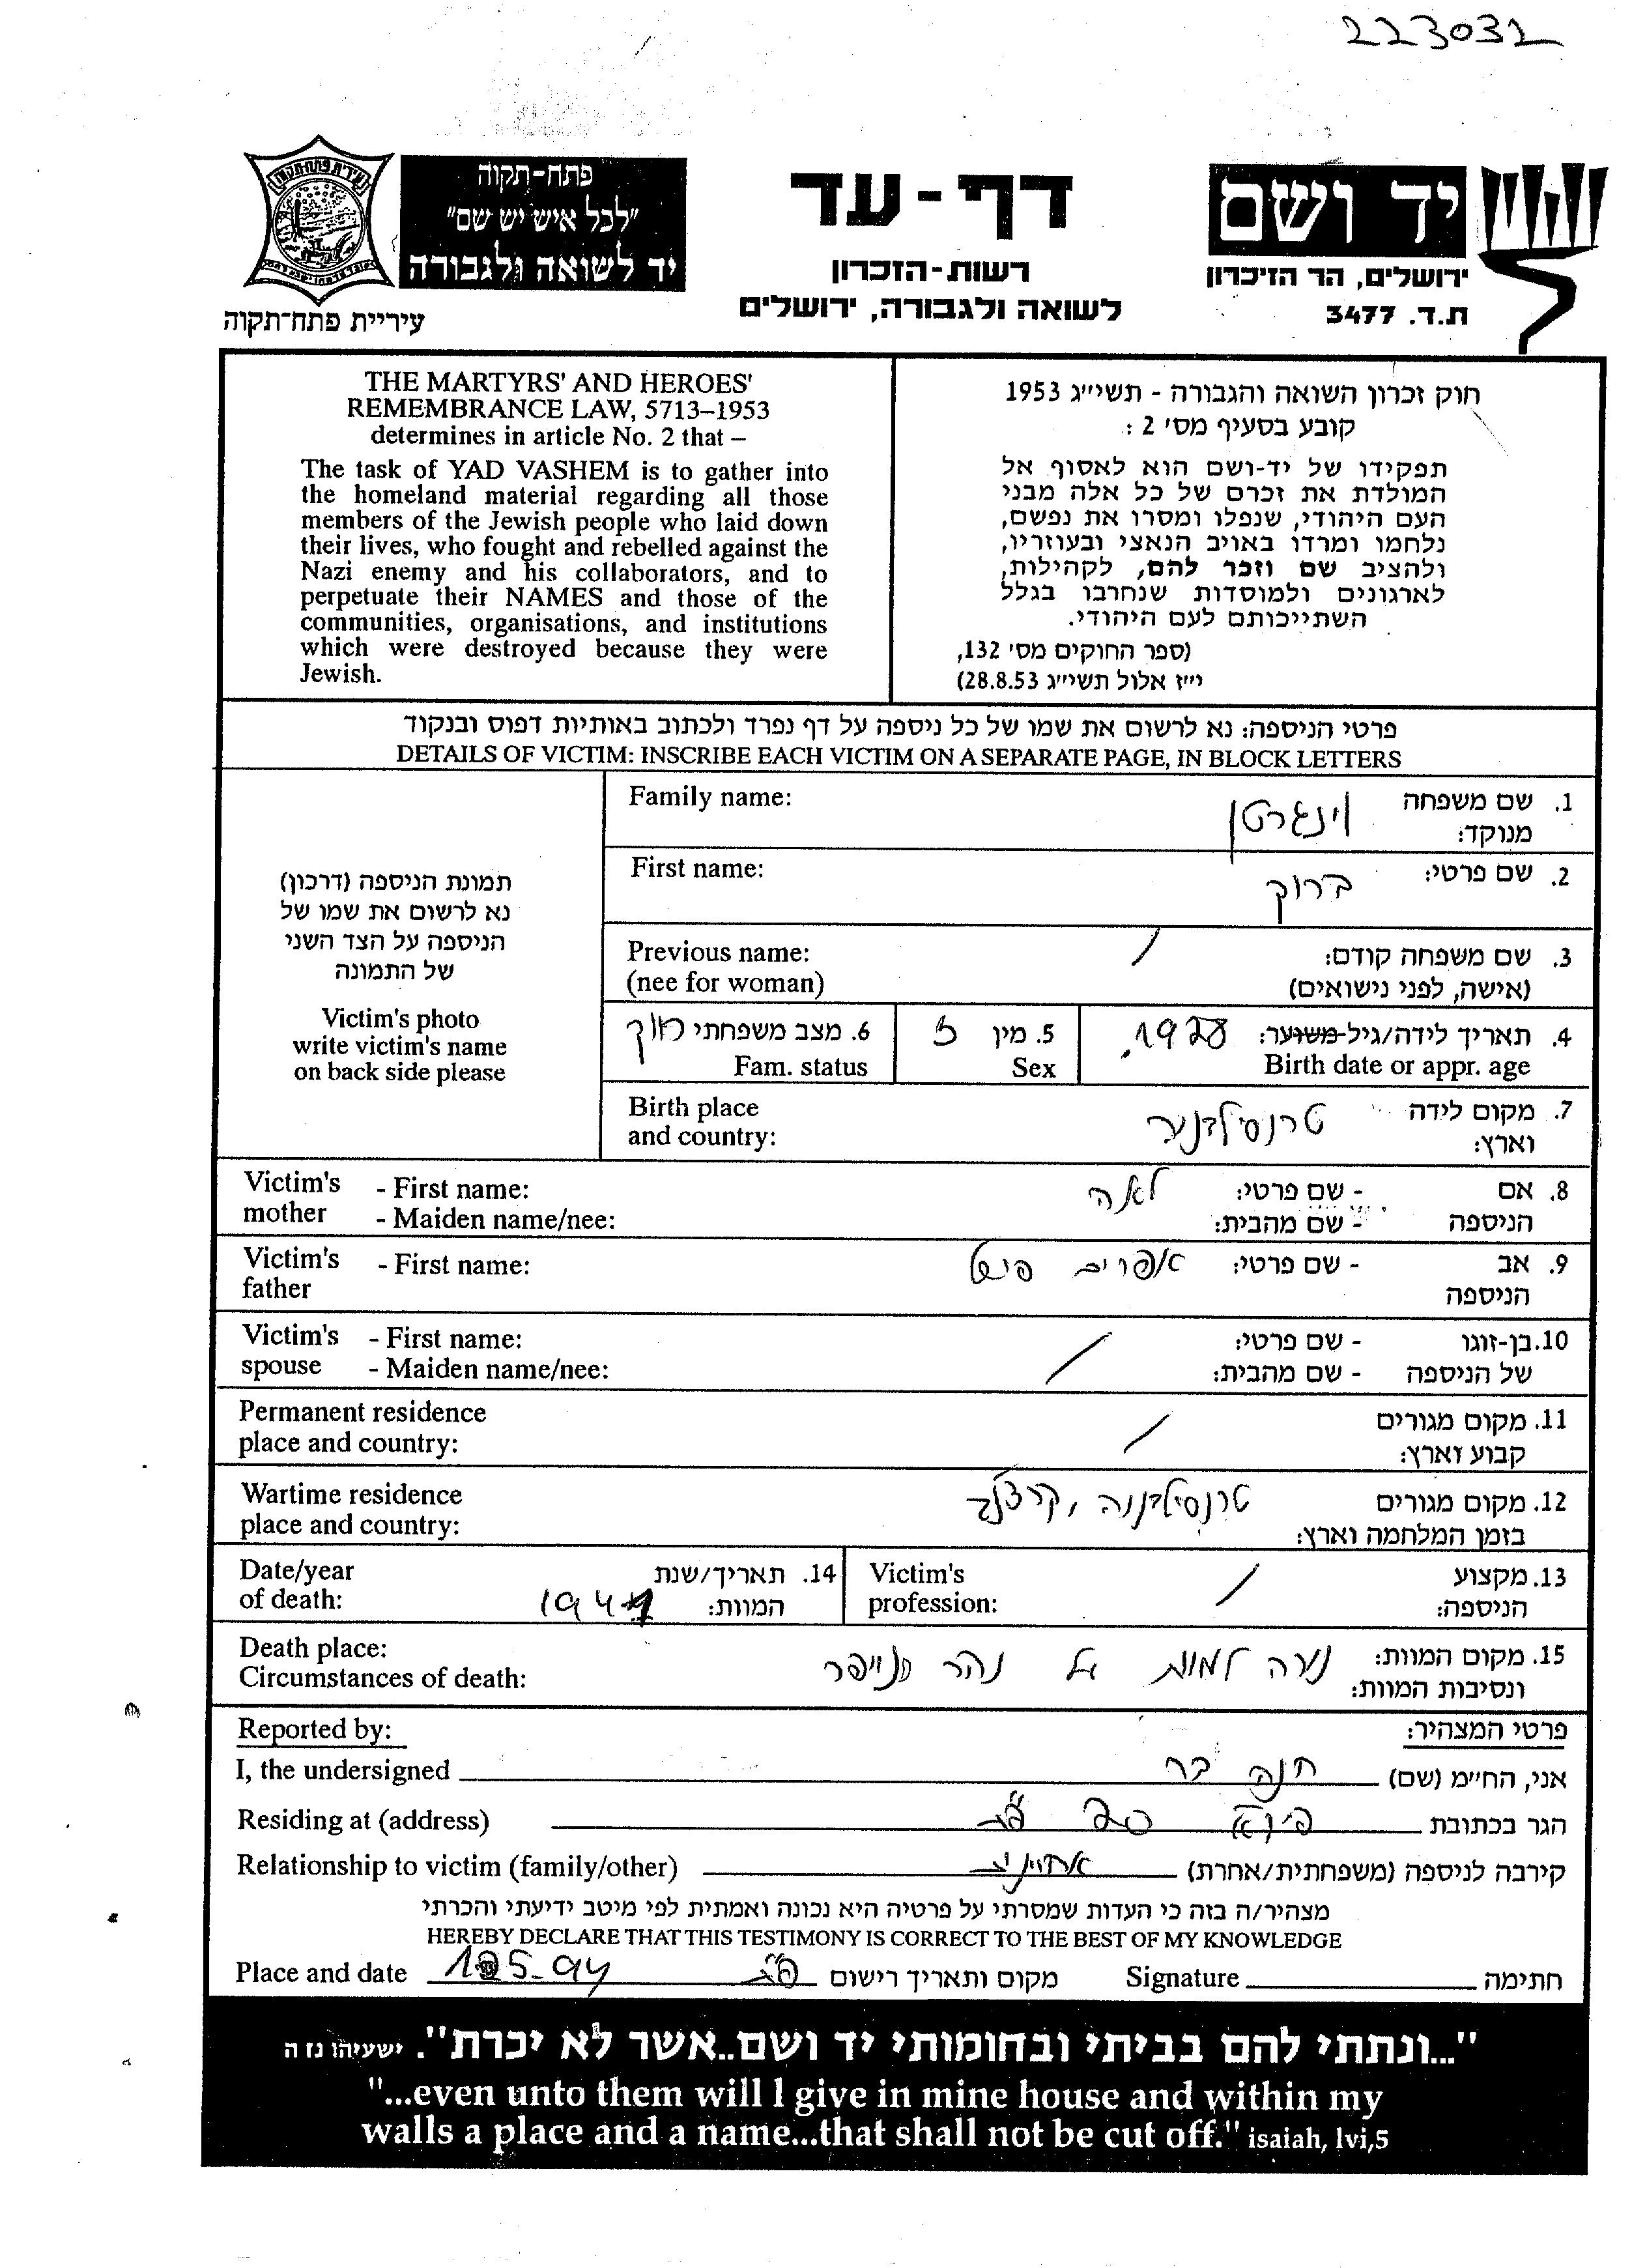 223032
יד ושם
ירושלים, הר הזיכרון
ת.ד. 3477
דף-עד
רשות-הזכרון
לשואה ולגבורה, ירושלים
פתח-תקוה
"לכל איש יש שם"
יד לשואה ולגבורה
עיריית פתח-תקוה
חוק זכרון השואה והגבורה - תשי״ג 1953
קובע בסעיף מס׳ 2 :
תפקידו של יד-ושם הוא לאסוף אל
המולדת את זכרם של כל אלה מבני
העם היהודי, שנפלו ומסרו את נפשם,
נלחמו ומרדו באויב הנאצי ובעוזריו,
ולהציב שם וזכר להם, לקהילות,
לארגונים ולמוסדות שנחרבו בגלל
השתייכותם לעם היהודי.
(ספר החוקים מס׳ 132,
י״ז אלול תשי״ג 28.8.53)
THE MARTYRS' AND HEROES'
REMEMBRANCE LAW, 5713–1953
determines in article No. 2 that –
The task of YAD VASHEM is to gather into
the homeland material regarding all those
members of the Jewish people who laid down
their lives, who fought and rebelled against the
Nazi enemy and his collaborators, and to
perpetuate their NAMES and those of the
communities, organisations, and institutions
which were destroyed because they were
Jewish.
פרטי הניספה: נא לרשום את שמו של כל ניספה על דף נפרד ולכתוב באותיות דפוס ובנקוד
DETAILS OF VICTIM: INSCRIBE EACH VICTIM ON A SEPARATE PAGE, IN BLOCK LETTERS
תמונת הניספה (דרכון)
נא לרשום את שמו של
הניספה על הצד השני
של התמונה
Victim's photo
write victim's name
on back side please
1. שם משפחה וינגרטן Family name:
מנוקד:
2. שם פרטי: ברוך First name:
3. שם משפחה קודם: / Previous name:
(אישה, לפני נישואים) (nee for woman)
4. תאריך לידה/גיל משוער: 1928. 5. מין ז 6. מצב משפחתי רווק
Birth date or appr. age Sex Fam. status
7. מקום לידה טרנסילבניה Birth place
וארץ: and country:
8. אם - שם פרטי: לאה Victim's - First name:
הניספה - שם מהבית: mother - Maiden name/nee:
9. אב - שם פרטי: אפרים פישל Victim's - First name:
הניספה father
10. בן-זוגו - שם פרטי: / Victim's - First name:
של הניספה - שם מהבית: spouse - Maiden name/nee:
11. מקום מגורים / Permanent residence
קבוע וארץ: place and country:
12. מקום מגורים טרנסילבניה, Wartime residence
בזמן המלחמה וארץ: place and country:
13. מקצוע / Victim's 14. תאריך/שנת Date/year
הניספה: profession: המוות: 1944 of death:
15. מקום המוות: נורה למוות על נהר הדנייפר Death place:
ונסיבות המוות: Circumstances of death:
פרטי המצהיר: Reported by:
אני, החי״מ (שם) חנה בר I, the undersigned
הגר בכתובת 20 פ״ת Residing at (address)
קירבה לניספה (משפחתית/אחרת) אחיינית Relationship to victim (family/other)
מצהיר/ה בזה כי העדות שמסרתי על פרטיה היא נכונה ואמתית לפי מיטב ידיעתי והכרתי
HEREBY DECLARE THAT THIS TESTIMONY IS CORRECT TO THE BEST OF MY KNOWLEDGE
חתימה Signature מקום ותאריך רישום פ״ת Place and date
"...ונתתי להם בביתי ובחומותי יד ושם..אשר לא יכרת". ישעיהו נז ה
"...even unto them will I give in mine house and within my
walls a place and a name...that shall not be cut off." isaiah, lvi,5